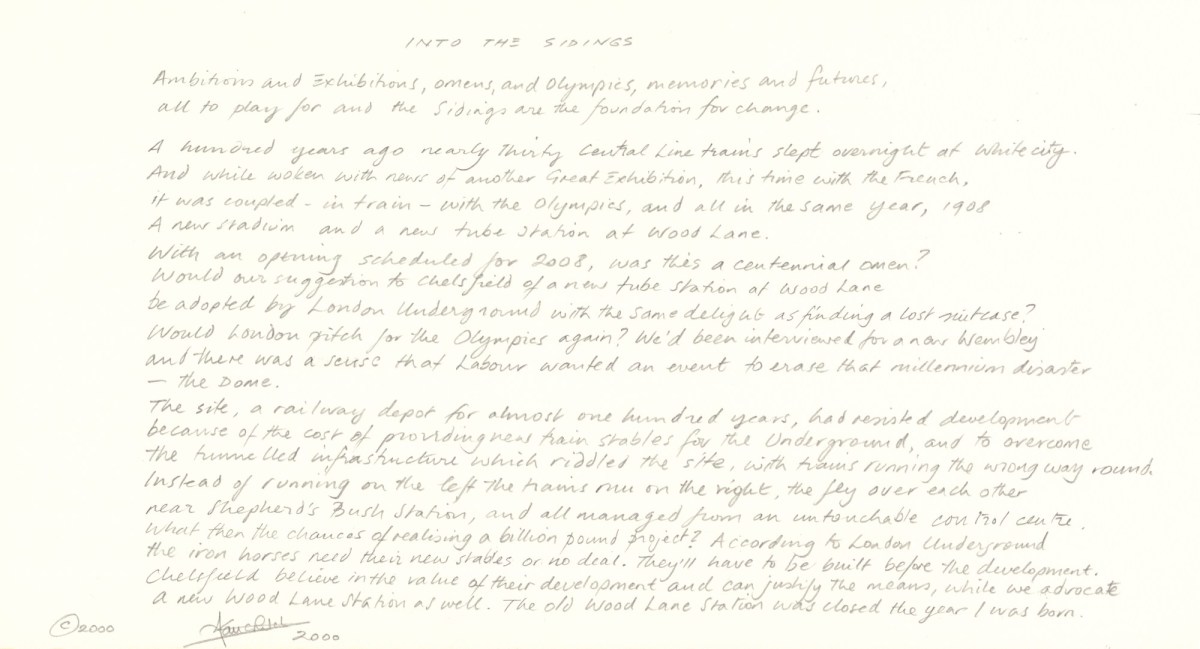 INTO THE SIDINGS
Ambitions and Exhibitions, omens, and Olympics, memories and futures,
all to play for and the Sidings are the foundation for change.
A hundred years ago nearly thirty Central Line trains slept overnight at White City.
And while woken with news of another Great Exhibition, this time with the French,
it was coupled - in train - with the Olympics, and all in the same year, 1908
A new stadium and a new tube station at Wood Lane.
With an opening scheduled for 2008, was this a centennial omen?
Would our suggestion to Chelsfield of a new tube station at Wood Lane
be adopted by London Underground with the same delight as finding a lost suitcase?
Would London pitch for the Olympics again? We'd been interviewed for a new Wembley
and there was a sense that Labour wanted an event to erase that millennium disaster
— the Dome.
The site, a railway depot for almost one hundred years, had resisted development
because of the cost of providing new train stables for the Underground, and to overcome
the tunnelled infrastructure which riddled the site, with trains running the wrong way round.
Instead of running on the left the trains run on the right, the fly over each other
near Shepherd's Bush Station, and all managed from an untouchable control centre.
What then the chances of realising a billion pound project? According to London Underground
the iron horses need their new stables or no deal. They'll have to be built before the development.
Chelsfield believe in the value of their development and can justify the means, while we advocate
a new Wood Lane Station as well. The old Wood Lane Station was closed the year I was born.
©2000 2000